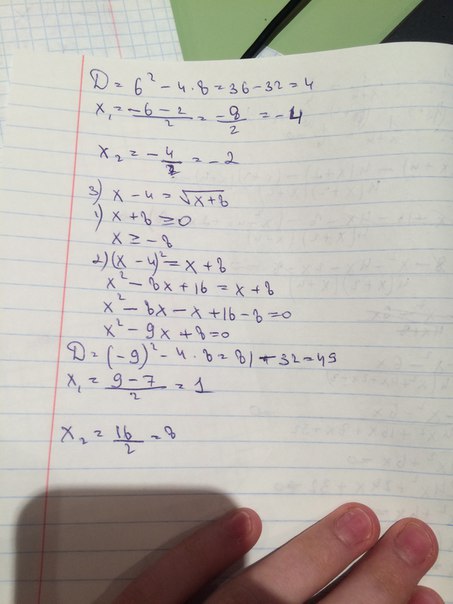 D = 6² - 4 · 8 = 36 - 32 = 4
x₁ = (-6 - 2)/2 = -8/2 = -4
x₂ = -4/2 = -2
3) x - 4 = √(x + 8)
1) x + 8 ≥ 0
x ≥ -8
2) (x - 4)² = x + 8
x² - 8x + 16 = x + 8
x² - 8x - x + 16 - 8 = 0
x² - 9x + 8 = 0
D = (-9)² - 4 · 8 = 81 - 32 = 49
x₁ = (9 - 7)/2 = 1
x₂ = 16/2 = 8